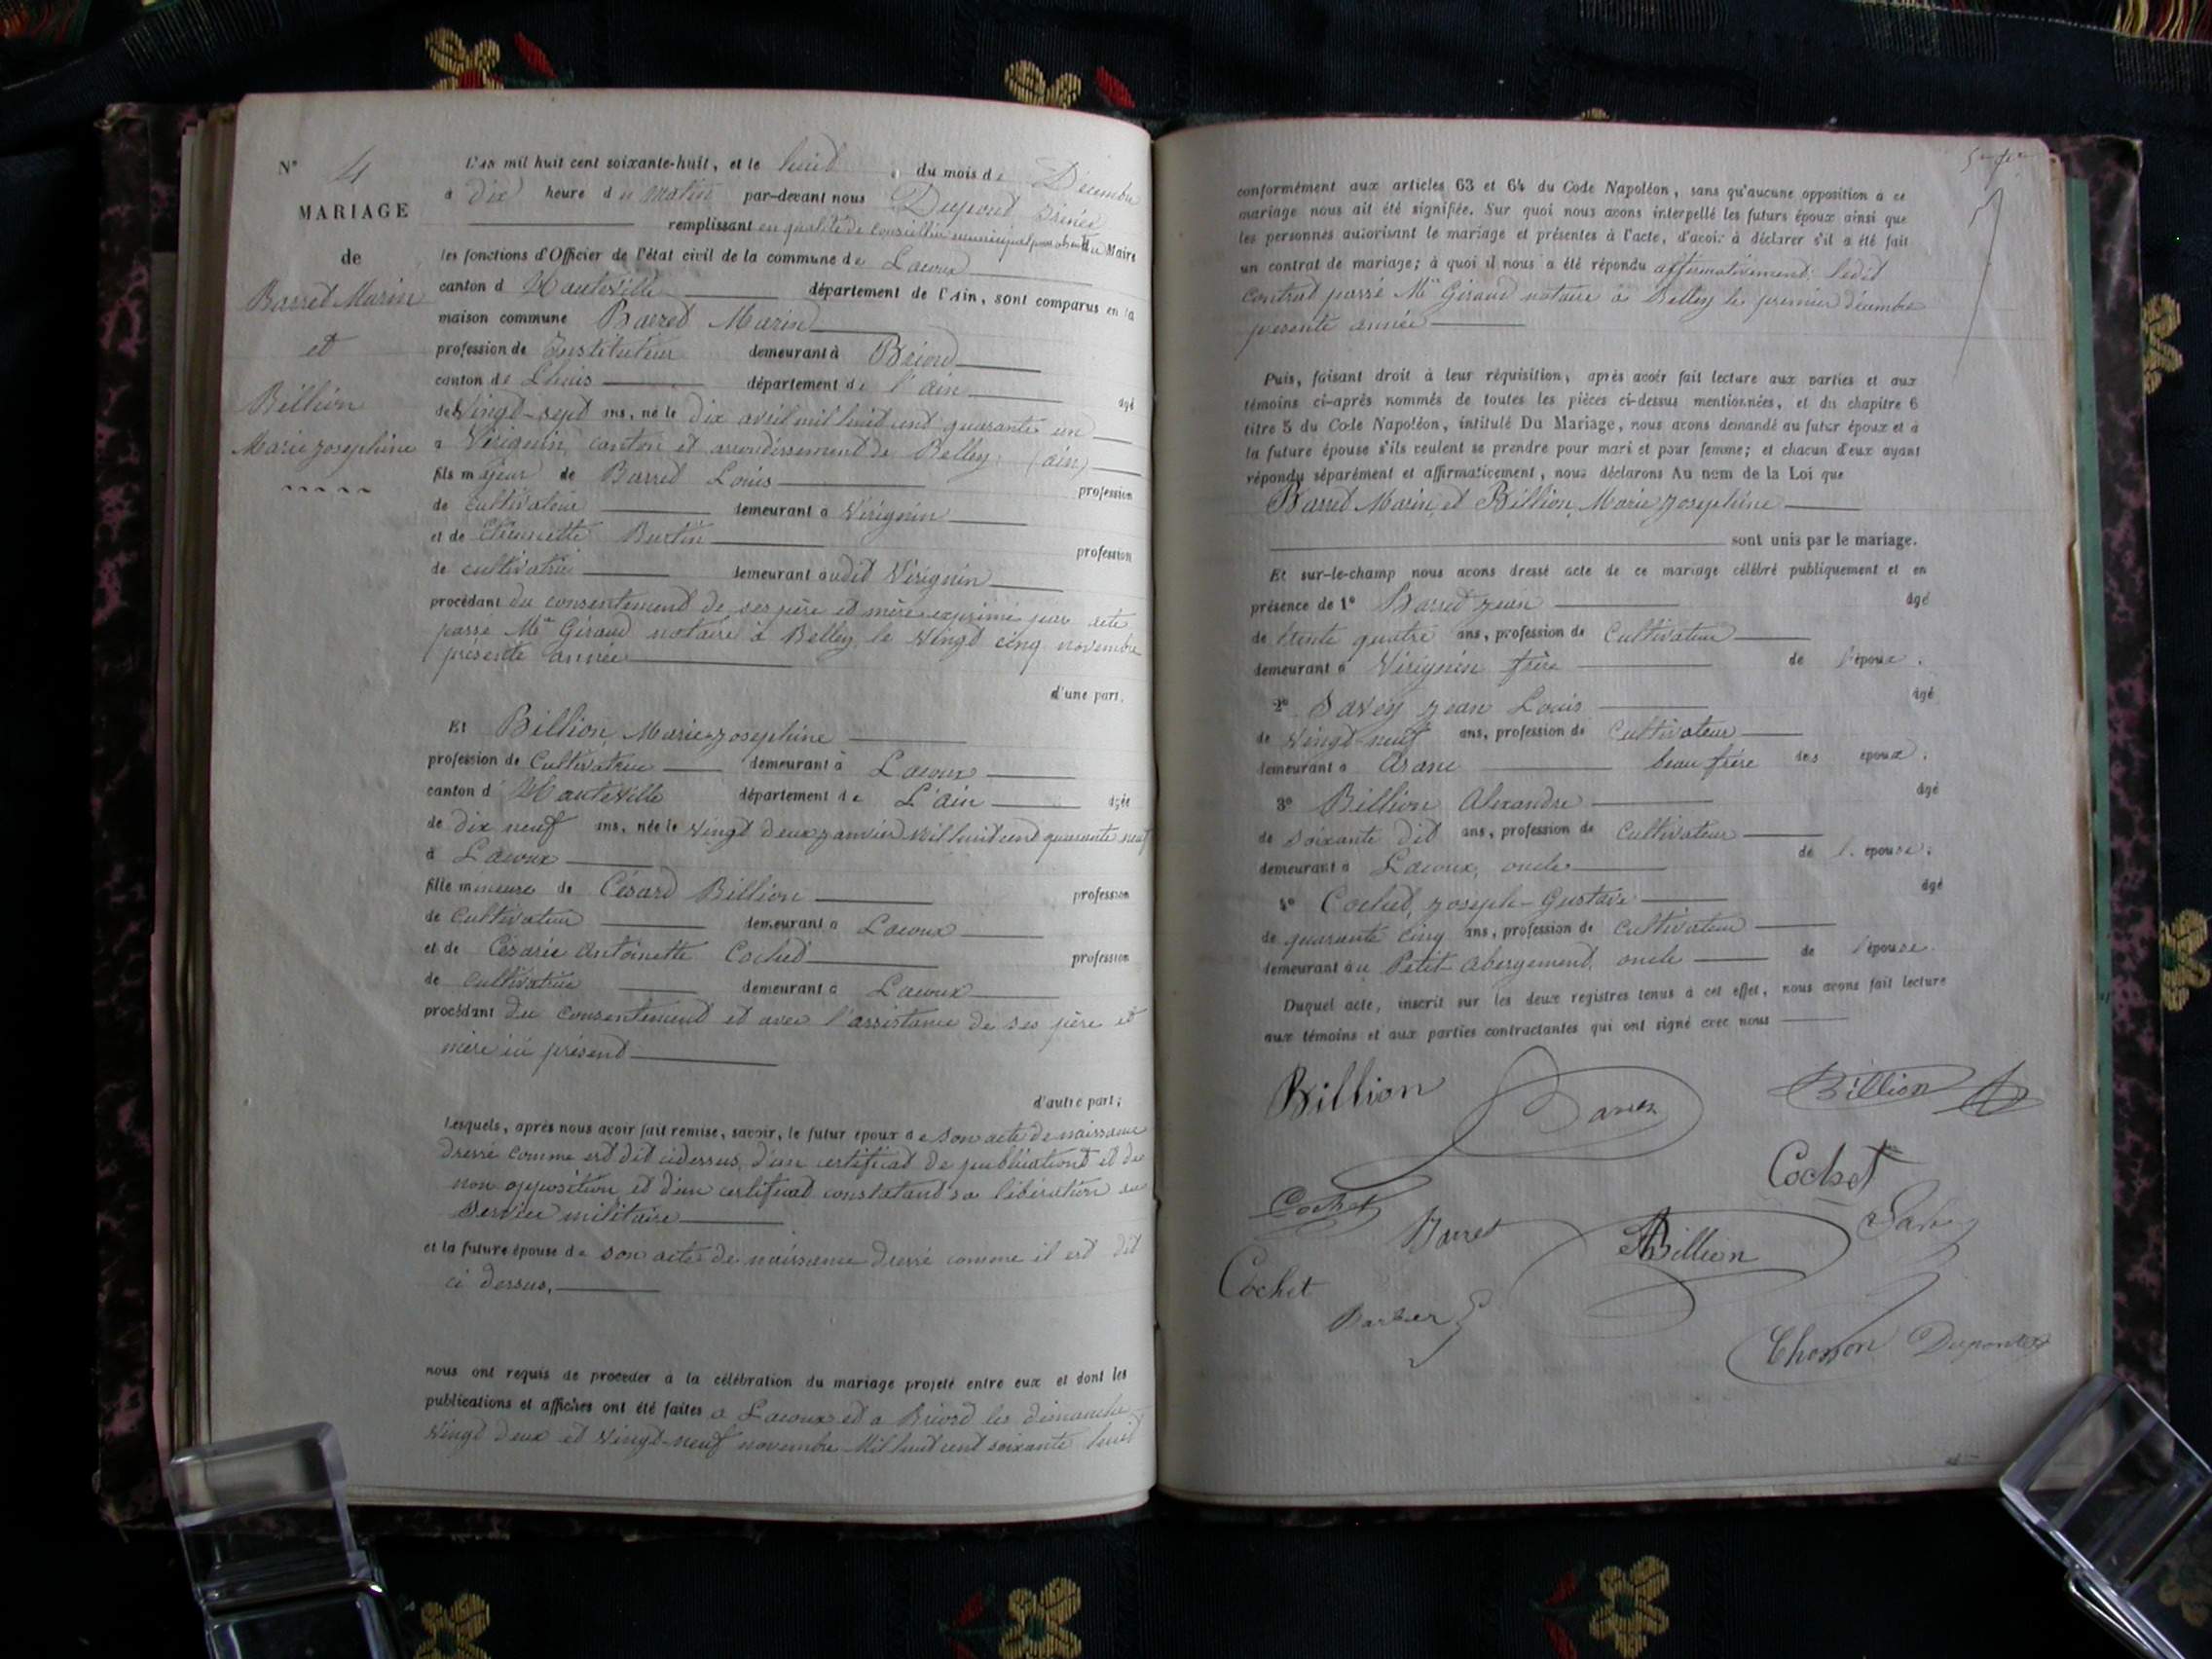 N° 4
MARIAGE
de
Barret Marin
et
Billion
Marie Josephine
L'an mil huit cent soixante-huit, et le huit du mois de Décembre
à dix heure du matin par-devant nous Dupont Irénée
remplissant en qualité de Conseiller municipal par du Maire
les fonctions d'Officier de l'état civil de la commune de Lacoux
canton d'Hauteville département de l'Ain, sont comparus en la
maison commune Barret Marin
profession de Instituteur demeurant à Briord
canton de Lhuis département de l'ain âgé
de Vingt-sept ans, né le dix avril mil huit cent quarante un
à Virignin, canton et arrondissement de Belley (ain)
fils majeur de Barret Louis profession
de cultivateur demeurant à Virignin
et de Etiennette Burtin profession
de cultivatrice demeurant audit Virignin
procédant du consentement de ses père et mère exprimé par acte
passé Me Giraud notaire à Belley le Vingt cinq novembre
présente année
d'une part.
Et Billion Marie Josephine
profession de Cultivatrice demeurant à Lacoux
canton d'Hauteville département de L'ain âgée
de dix neuf ans, née le vingt deux janvier mil huit cent quarante neuf
à Lacoux
fille mineure de César Billion profession
de Cultivateur demeurant à Lacoux
et de Césarie Antoinette Cochet profession
de Cultivatrice demeurant à Lacoux
procédant du consentement et avec l'assistance de ses père et
mère ici présent
d'autre part;
Lesquels, après nous avoir fait remise, savoir, le futur époux de son acte de naissance
dressé comme est dit cidessus, d'un certificat de publications et de
non opposition et d'un certificat constatant sa libération du
service militaire
et la future épouse de son acte de naissance dressé comme il est dit
ci dessus.
nous ont requis de procéder à la célébration du mariage projeté entre eux et dont les
publications et affiches ont été faites à Lacoux et à Briord les dimanche
Vingt deux et Vingt-neuf novembre Mil huit cent soixante huit
conformément aux articles 63 et 64 du Code Napoléon, sans qu'aucune opposition à ce
mariage nous ait été signifiée. Sur quoi nous avons interpellé les futurs époux ainsi que
les personnes autorisant le mariage et présentes à l'acte, d'avoir à déclarer s'il a été fait
un contrat de mariage; à quoi il nous a été répondu affirmativement: ledit
Contrat passé Me Giraud notaire à Belley le premier décembre
présente année
Puis, faisant droit à leur réquisition, après avoir fait lecture aux parties et aux
témoins ci-après nommés de toutes les pièces ci-dessus mentionnées, et du chapitre 6
titre 5 du Code Napoléon, intitulé Du Mariage, nous avons demandé au futur époux et à
la future épouse s'ils veulent se prendre pour mari et pour femme; et chacun d'eux ayant
répondu séparément et affirmativement, nous déclarons Au nom de la Loi que
Barret Marin et Billion Marie Josephine
sont unis par le mariage.
Et sur-le-champ nous avons dressé acte de ce mariage célébré publiquement et en
présence de 1° Barret Jean âgé
de trente quatre ans, profession de Cultivateur
demeurant à Virignin frère de l'époux.
2° Savey Jean Louis âgé
de Vingt-neuf ans, profession de Cultivateur
demeurant à Aranc beau frère des époux.
3° Billion Alexandre âgé
de soixante dit ans, profession de Cultivateur
demeurant à Lacoux, oncle de l'épouse;
4° Cochet, Joseph-Gustave âgé
de quarante Cinq ans, profession de Cultivateur
demeurant au Petit Abergement, oncle de l'épouse.
Duquel acte, inscrit sur les deux registres tenus à cet effet, nous avons fait lecture
aux témoins et aux parties contractantes qui ont signé avec nous
Billion
Barret
Billion
Cochet
Cochet
Barret
Billion
Savey
Cochet
Barbier
Chosson
Dupont